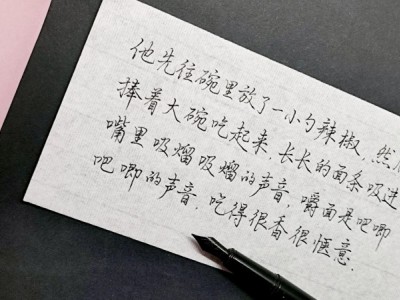 他先往碗里放了一小勺辣椒,然
捧着大碗吃起来.长长的面条吸进
嘴里吸熘吸熘的声音.嚼面是吧唧
吧唧的声音.吃得很香很惬意.